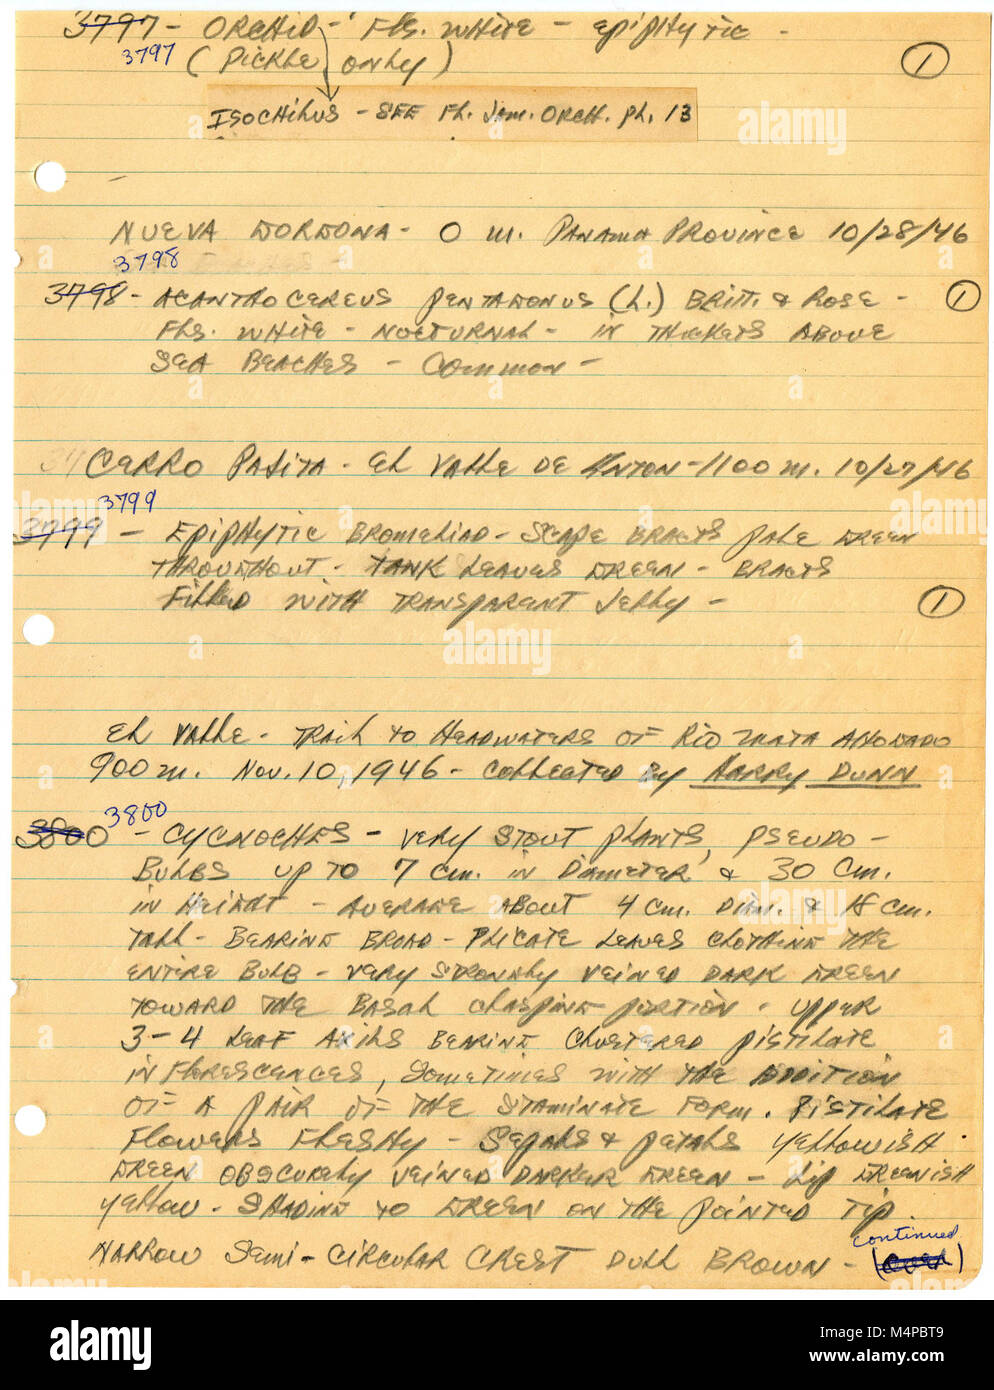 3797 - ORCHID - Fls. WHITE - EPIPHYTIC -
3797
(Pickle only)
1
ISOCHILUS - SEE Fl. Jam. ORCH. pl. 13
NUEVA GORGONA - 0 m. PANAMA PROVINCE 10/28/46
3798
3798 - ACANTHOCEREUS PENTAGONUS (L.) BRITT. & ROSE -
1
Fls. WHITE - NOCTURNAL - IN THICKETS ABOVE
SEA BEACHES - COMMON -
CERRO PAJITA - EL VALLE DE ANTON - 1100 m. 10/27/46
3799
3799 - EPIPHYTIC BROMELIAD - SCAPE BRACTS PALE GREEN
THROUGHOUT - TANK LEAVES GREEN - BRACTS
FILLED WITH TRANSPARENT JELLY -
1
EL VALLE - TRAIL TO HEADWATERS OF RIO MATA AHOGADO
900 m. NOV. 10, 1946 - COLLECTED BY HARRY DUNN
3800
3800 - CYCNOCHES - VERY STOUT PLANTS, PSEUDO-
BULBS UP TO 7 cm. IN DIAMETER & 30 cm.
IN HEIGHT - AVERAGE ABOUT 4 cm. DIAM. & 18 cm.
TALL - BEARING BROAD - PLICATE LEAVES CLOTHING THE
ENTIRE BULB - VERY STRONGLY VEINED DARK GREEN
TOWARD THE BASAL CLASPING PORTION - UPPER
3-4 LEAF AXILS BEARING CLUSTERED PISTILATE
INFLORESCENCES, SOMETIMES WITH THE ADDITION
OF A PAIR OF THE STAMINATE FORM. PISTILATE
FLOWERS FLESHY - SEPALS & PETALS YELLOWISH
GREEN OBSCURELY VEINED DARKER GREEN - LIP GREENISH
YELLOW - SHADING TO GREEN ON THE POINTED TIP.
continued
NARROW SEMI-CIRCULAR CREST DULL BROWN - (over)
alamy
Image ID: M4PBT9
www.alamy.com